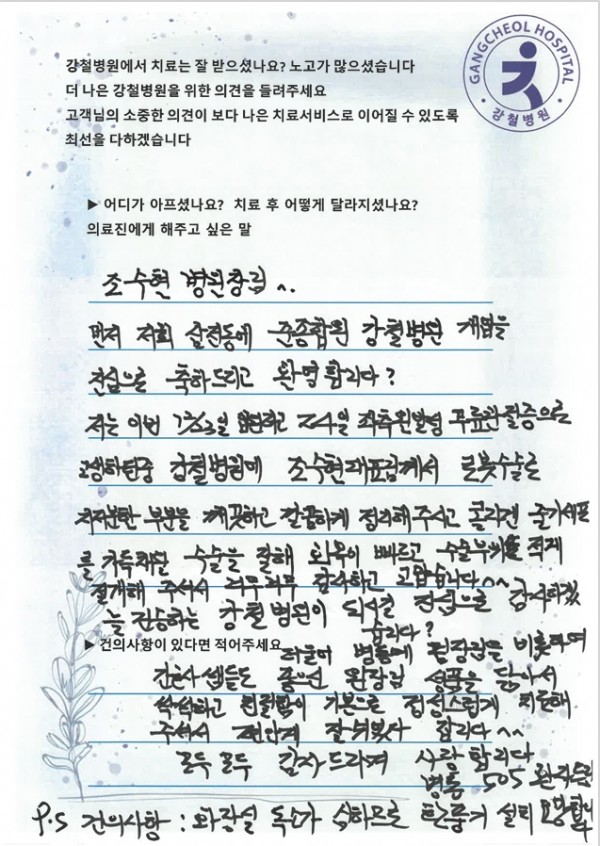 GANGCHEOL HOSPITAL
강철병원
강철병원에서 치료는 잘 받으셨나요? 노고가 많으셨습니다
더 나은 강철병원을 위한 의견을 들려주세요
고객님의 소중한 의견이 보다 나은 치료서비스로 이어질 수 있도록
최선을 다하겠습니다
▶ 어디가 아프셨나요? 치료 후 어떻게 달라지셨나요?
의료진에게 해주고 싶은 말
조수현 병원장님 ^.
먼저 저희 동네에 준종합병원 강철병원 개업을
진심으로 축하드리고 환영합니다?
저는 이번 입원하고 24일 좌측 무릎관절증으로
고생하던중 강철병원에 조수현대표님께서 로봇수술로
지저분한 부분을 깨끗하고 깔끔하게 정리해주시고 콜라겐 줄기세포
를 수술을 잘해 회복이 빠르고 수술부위를 적게
절개해 주셔서 너무너무 감사하고 고맙습니다^^
늘 강철병원이 되시길 진심으로 감사하겠
습니다?
▶ 건의사항이 있다면 적어주세요
더불어 병동에 원장님을 비롯하여
간호사 쌤들도 좋으신 원장님 성품을 닮아서
싹싹하고 친절함이 기본으로 정성스럽게 치료해
주셔서 편안하게 잘 합니다^^
모두모두 감사드리며 사랑합니다
병동 505
P.S 건의사항 : 화장실 독소가 심하므로 환풍기 설치